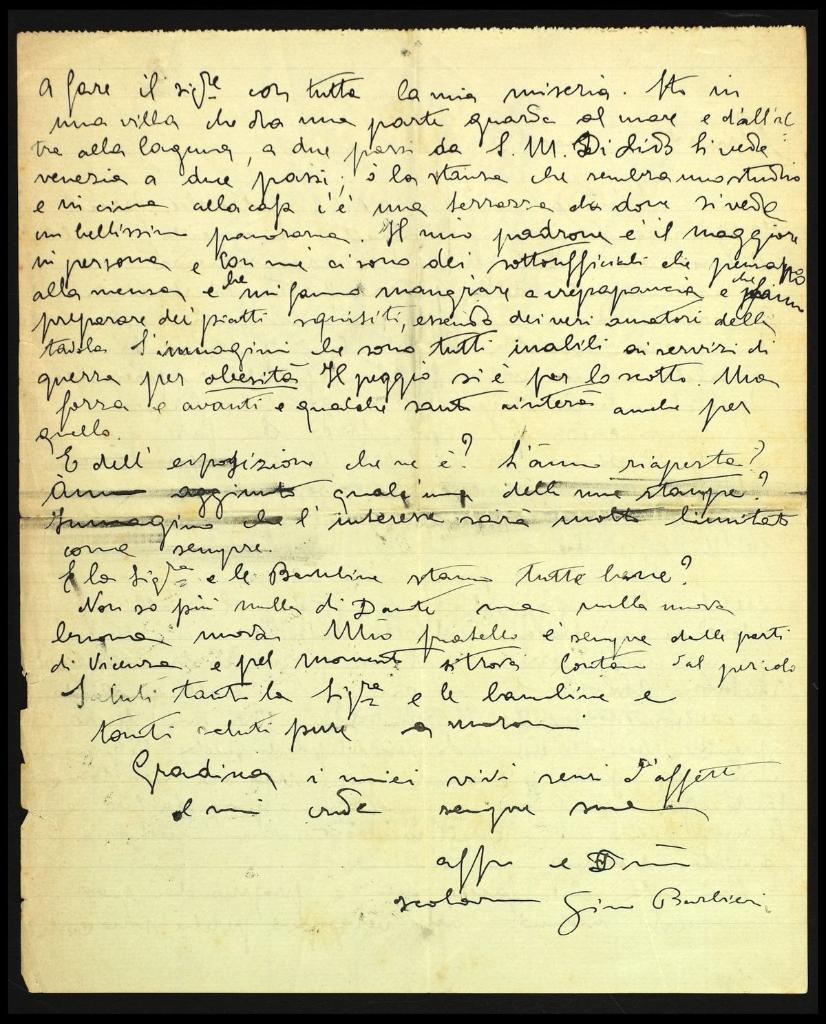 a fare il sigre con tutta la mia miseria. Sto in
una villa che da una parte guarda al mare e d'all'al
tra alla laguna, a due passi da S. M. Di Lido Si vede
venezia a due passi; ò la stanza che sembra uno studio
e in cima alla casa c'è una terrazza da dove si vede
un bellissimo panorama. Il mio padrone è il maggiore
in persona e con me ci sono dei sottoufficiali che pensano
alla mensa e che mi fanno mangiare a crepapancia e che fanno
preparare dei piatti squisiti, essendo dei veri amatori della
tavola S'immagini che sono tutti inabili ai servizi di
guerra per obesità Il peggio si è per lo scotto. Ma
forza e avanti e qualche santo aiuterà anche per
quello.
E dell' esposizione che ne è? L'ànno riaperta?
Ànno aggiunto qualc'una delle mie stampe?
Immagino che l'interesse sarà molto limitato
come sempre.
E la Sigra e le Bambine stanno tutte bene?
Non so più nulla di Dante ma nulla nuova
buona nuova. Mio fratello è sempre dalle parti
di Vicenza e pel momento si trova lontano dal pericolo
Saluti tanto la Sigra e le bambine e
tanti saluti pure a
Gradisca i miei vivi sensi d'affetto
e mi creda sempre suo
affo e
scolaro Gino Barbieri